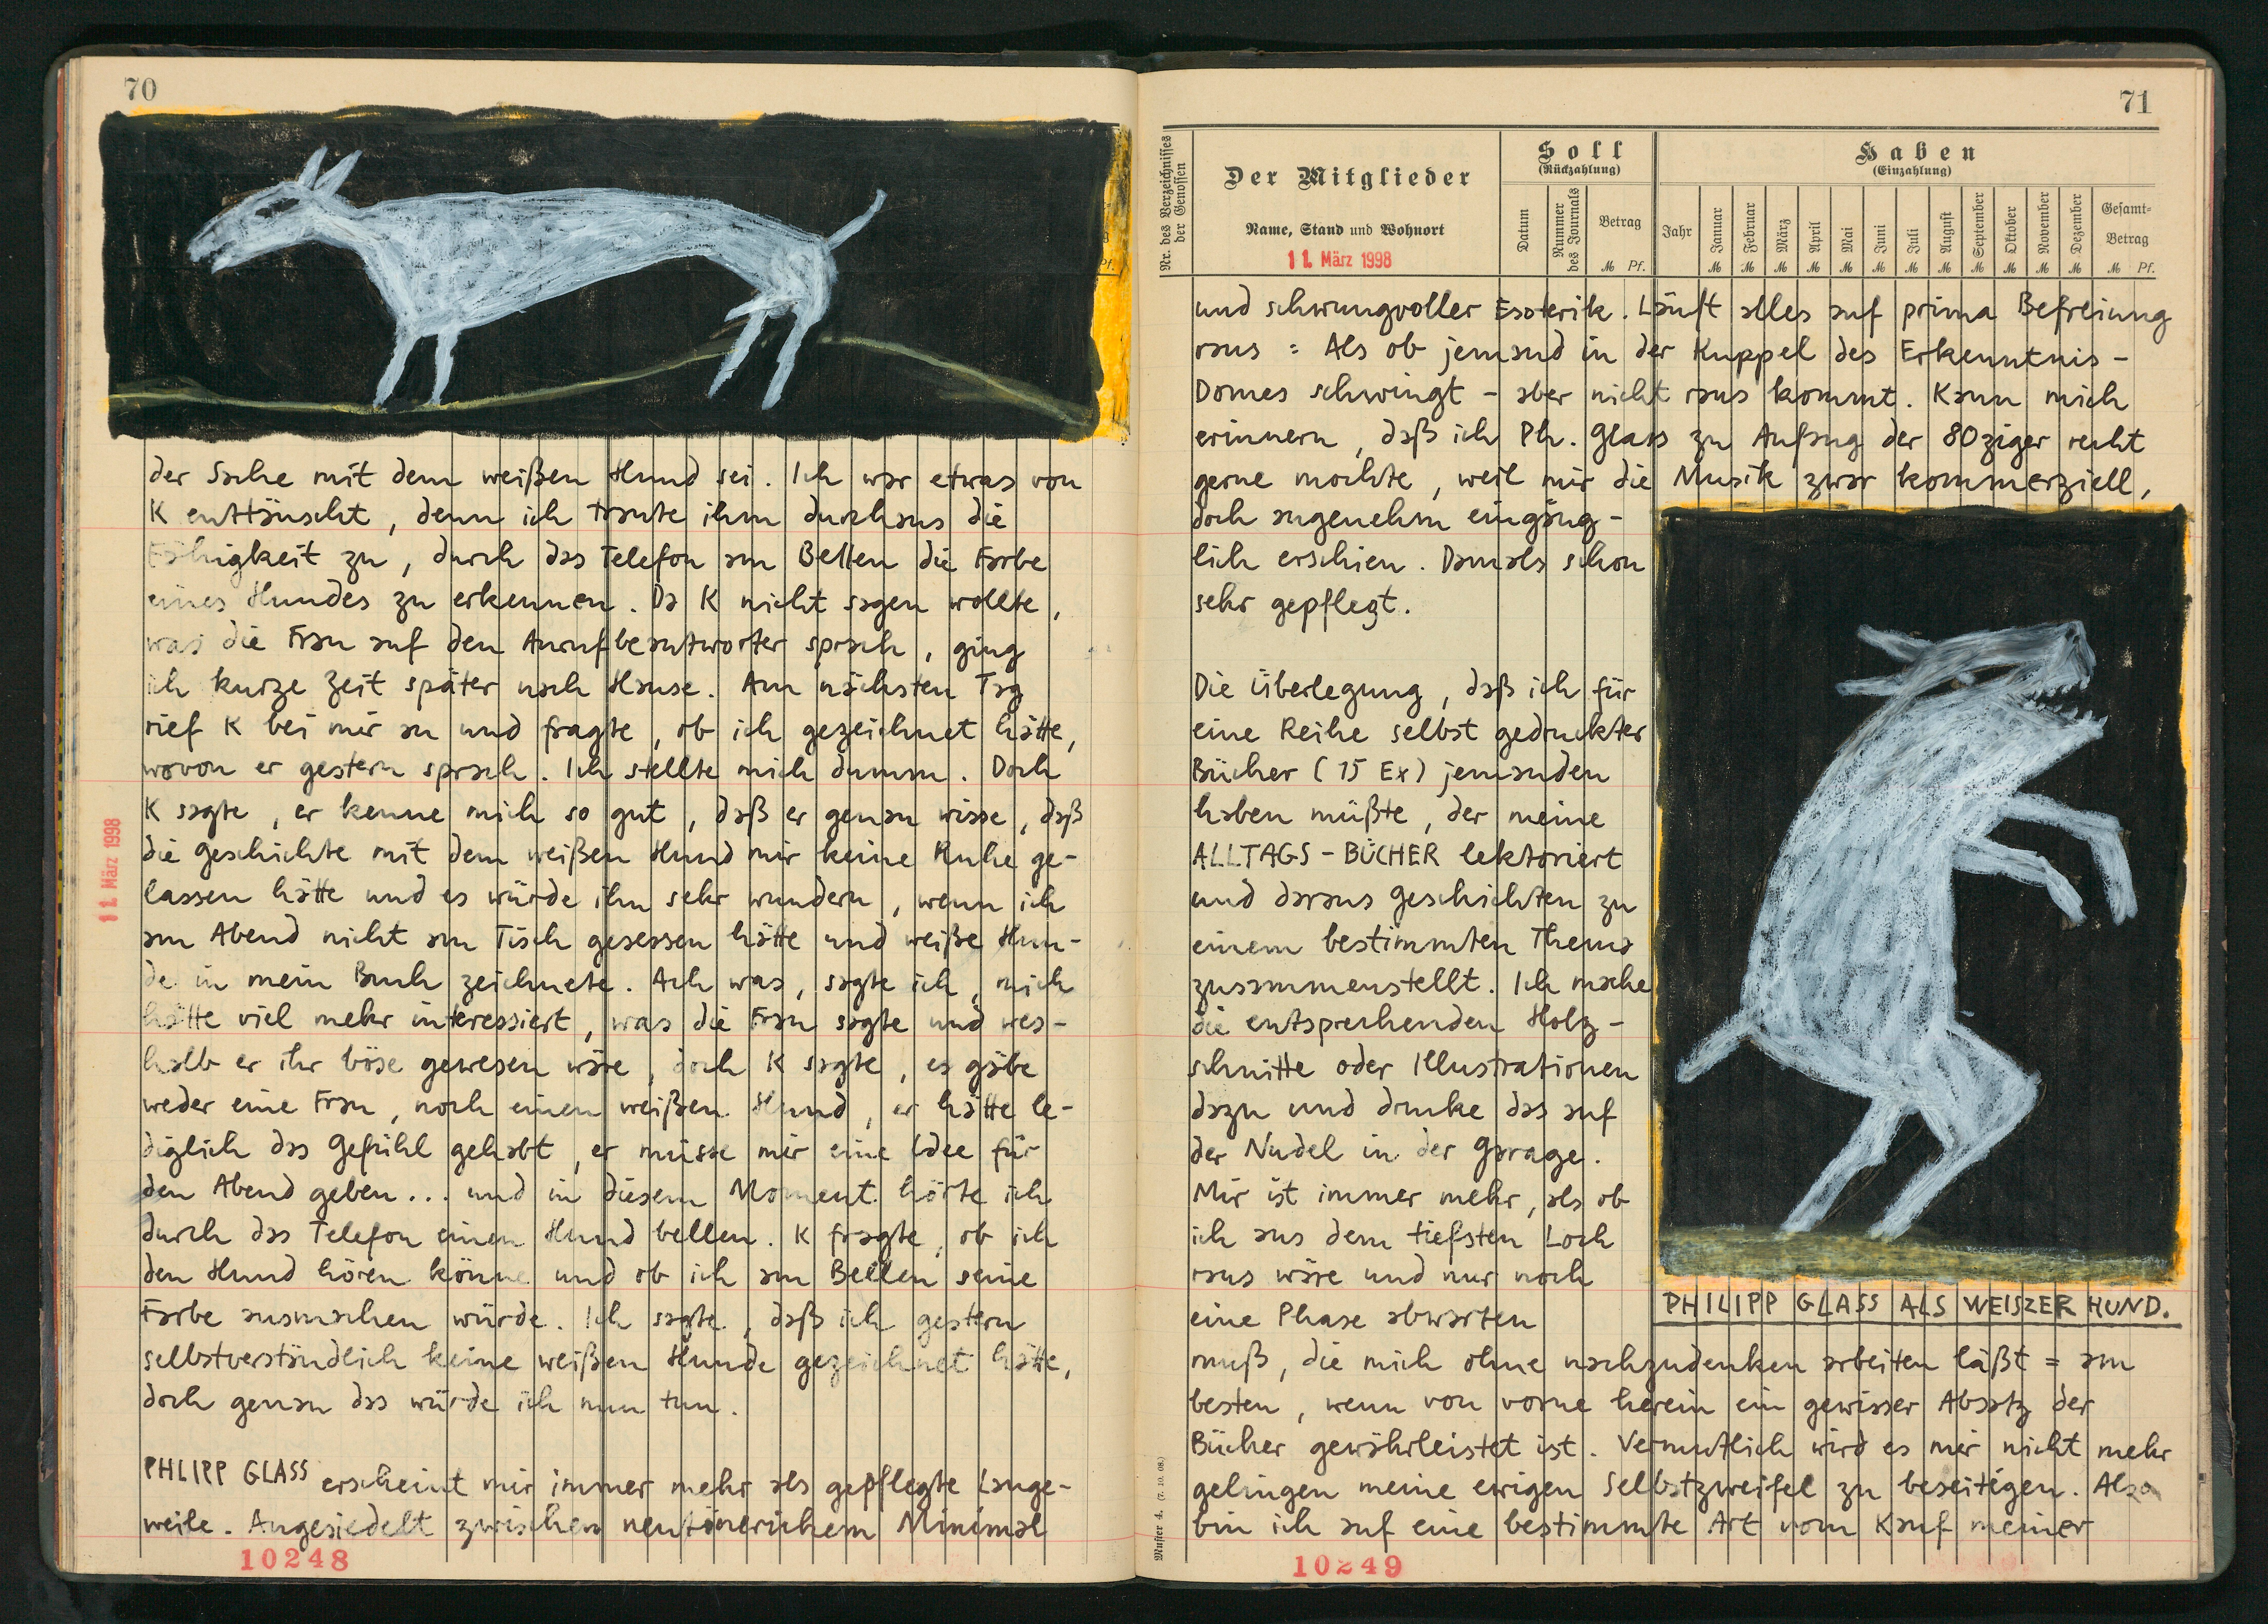 70
der Sache mit dem weißen Hund sei. Ich war etwas von
K enttäuscht, denn ich traute ihm durchaus die
Fähigkeit zu, durch das Telefon am Bellen die Farbe
eines Hundes zu erkennen. Da K nicht sagen wollte,
was die Frau auf den Anrufbeantworter sprach, ging
ich kurze Zeit später nach Hause. Am nächsten Tag
rief K bei mir an und fragte, ob ich gezeichnet hätte,
wovon er gestern sprach. Ich stellte mich dumm. Doch
K sagte, er kenne mich so gut, daß er genau wisse, daß
die Geschichte mit dem weißen Hund mir keine Ruhe ge-
lassen hätte und es würde ihn sehr wundern, wenn ich
am Abend nicht am Tisch gesessen hätte und weiße Hun-
de in mein Buch zeichnete. Ach was, sagte ich, mich
hätte viel mehr interessiert, was die Frau sagte und wes-
halb er ihr böse gewesen wäre, doch K sagte, es gäbe
weder eine Frau, noch einen weißen Hund, er hätte le-
diglich das Gefühl gehabt, er müsse mir eine Idee für
den Abend geben... und in diesem Moment hörte ich
durch das Telefon einen Hund bellen. K fragte, ob ich
den Hund hören könne und ob ich am Bellen seine
Farbe ausmachen würde. Ich sagte, daß ich gestern
selbstverständlich keine weißen Hunde gezeichnet hätte,
doch genau das würde ich nun tun.
PHLIPP GLASS erscheint mir immer mehr als gepflegte Lange-
weile. Angesiedelt zwischen neutönerichem Minimal
11. März 1998
10248
71
Nr. des Verzeichnisses der Genossen
Der Mitglieder
Name, Stand und Wohnort
11. März 1998
Soll
(Rückzahlung)
Datum
Nummer des Journals
Betrag
M Pf.
Haben
(Einzahlung)
Jahr
Januar Februar März April Mai Juni Juli August September Oktober November Dezember
Gesamt-
Betrag
M M M M M M M M M M M M M Pf.
und schwungvoller Esoterik. Läuft alles auf prima Befreiung
raus = Als ob jemand in der Kuppel des Erkenntnis-
Domes schwingt - aber nicht raus kommt. Kann mich
erinnern, daß ich Ph. Glass zu Anfang der 80ziger recht
gerne mochte, weil mir die Musik zwar kommerziell,
doch angenehm eingäng-
lich erschien. Damals schon
sehr gepflegt.
Die Überlegung, daß ich für
eine Reihe selbst gedruckter
Bücher (15 Ex) jemanden
haben müßte, der meine
ALLTAGS-BÜCHER lektoriert
und daraus Geschichten zu
einem bestimmten Thema
zusammenstellt. Ich mache
die entsprechenden Holz-
schnitte oder Illustrationen
dazu und drucke das auf
der Nudel in der Garage.
Mir ist immer mehr, als ob
ich aus dem tiefsten Loch
raus wäre und nur noch
eine Phase abwarten
PHILIPP GLASS ALS WEISZER HUND.
muß, die mich ohne nachzudenken arbeiten läßt = am
besten, wenn von vorne herein ein gewisser Absatz der
Bücher gewährleistet ist. Vermutlich wird es mir nicht mehr
gelingen meine ewigen Selbstzweifel zu beseitigen. Also
bin ich auf eine bestimmte Art vom Kauf meiner
Muster 4. (7. 10. 08.)
10249